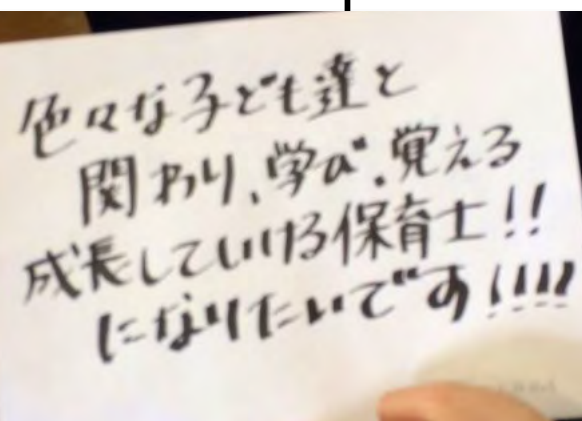 色々な子ども達と
関わり、学び、覚える
成長していける保育士!!
になりたいです!!!!